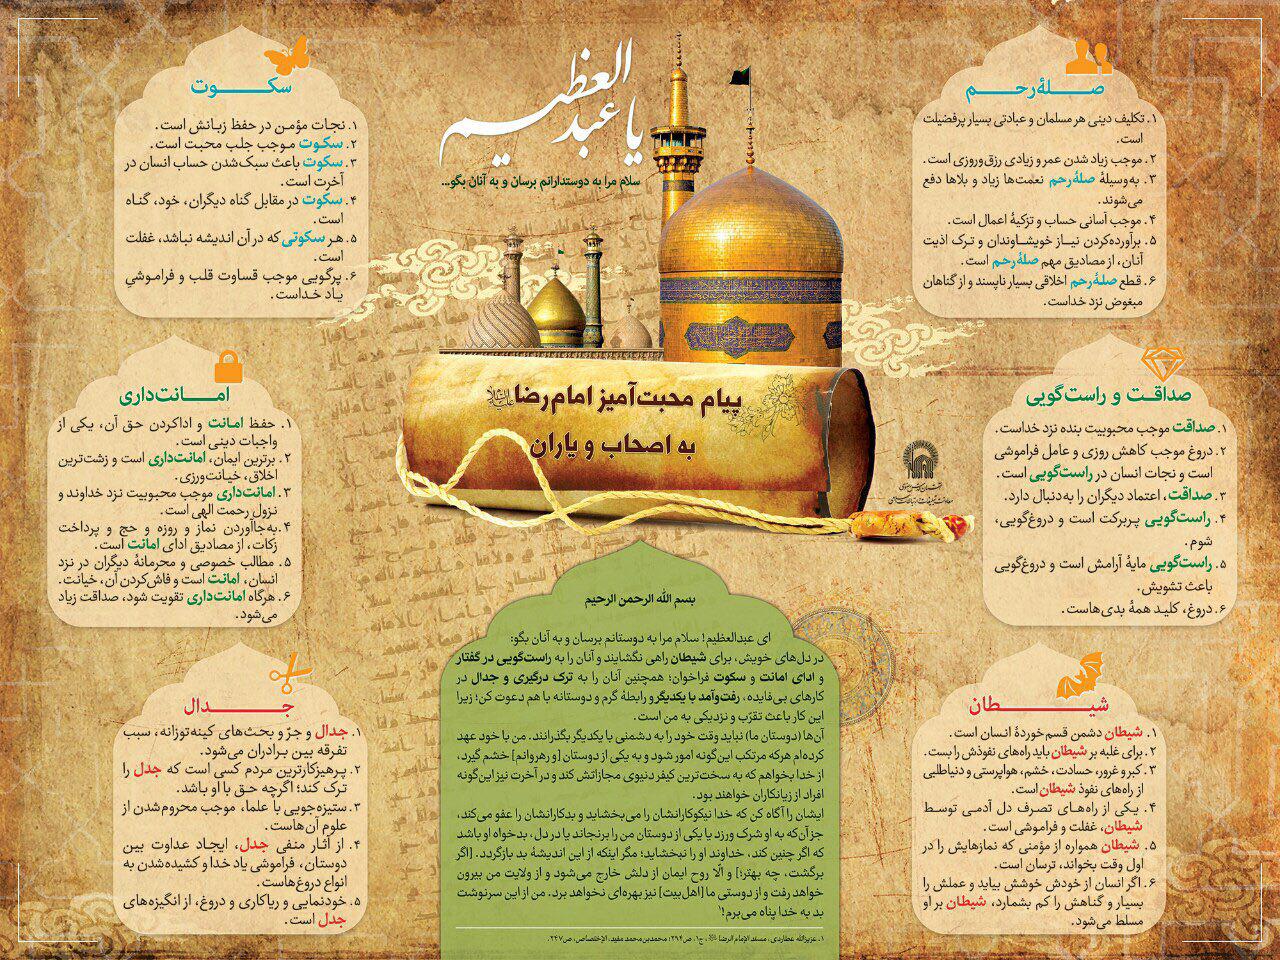 یا عبدالعظیم
سلام مرا به دوستدارانم برسان و به آنان بگو...
پیام محبت‌آمیز امام‌رضا علیه‌السلام
به اصحاب و یاران
صلهٔ‌رحم
۱. تکلیف دینی هر مسلمان و عبادتی بسیار پرفضیلت
است.
۲. موجب زیاد شدن عمر و زیادی رزق‌وروزی است.
۳. به‌وسیلهٔ صلهٔ‌رحم نعمت‌ها زیاد و بلاها دفع
می‌شوند.
۴. موجب آسانی حساب و تزکیهٔ اعمال است.
۵. برآورده‌کردن نیاز خویشاوندان و ترک اذیت
آنان، از مصادیق مهم صلهٔ‌رحم است.
۶. قطع صلهٔ‌رحم اخلاقی بسیار ناپسند و از گناهان
مبغوض نزد خداست.
صداقت و راست‌گویی
۱. صداقت موجب محبوبیت بنده نزد خداست.
۲. دروغ موجب کاهش روزی و عامل فراموشی
است و نجات انسان در راست‌گویی است.
۳. صداقت، اعتماد دیگران را به‌دنبال دارد.
۴. راست‌گویی پربرکت است و دروغ‌گویی،
شوم.
۵. راست‌گویی مایهٔ آرامش است و دروغ‌گویی
باعث تشویش.
۶. دروغ، کلید همهٔ بدی‌هاست.
شیطان
۱. شیطان دشمن قسم‌خوردهٔ انسان است.
۲. برای غلبه بر شیطان باید راه‌های نفوذش را بست.
۳. کبر و غرور، حسادت، خشم، هواپرستی و دنیاطلبی
از راه‌های نفوذ شیطان است.
۴. یکی از راه‌های تصرف دل آدمی توسط
شیطان، غفلت و فراموشی است.
۵. شیطان همواره از مؤمنی که نمازهایش را در
اول وقت بخواند، ترسان است.
۶. اگر انسان از خودش خوشش بیاید و عملش را
بسیار و گناهش را کم بشمارد، شیطان بر او
مسلط می‌شود.
سکوت
۱. نجات مؤمن در حفظ زبانش است.
۲. سکوت موجب جلب محبت است.
۳. سکوت باعث سبک‌شدن حساب انسان در
آخرت است.
۴. سکوت در مقابل گناه دیگران، خود، گناه
است.
۵. هر سکوتی که در آن اندیشه نباشد، غفلت
است.
۶. پرگویی موجب قساوت قلب و فراموشیِ
یاد خداست.
امانت‌داری
۱. حفظ امانت و اداکردن حق آن، یکی از
واجبات دینی است.
۲. برترین ایمان، امانت‌داری است و زشت‌ترین
اخلاق، خیانت‌ورزی.
۳. امانت‌داری موجب محبوبیت نزد خداوند و
نزول رحمت الهی است.
۴. به‌جاآوردن نماز و روزه و حج و پرداخت
زکات، از مصادیق ادای امانت است.
۵. مطالب خصوصی و محرمانهٔ دیگران در نزد
انسان، امانت است و فاش‌کردن آن، خیانت.
۶. هرگاه امانت‌داری تقویت شود، صداقت زیاد
می‌شود.
جدال
۱. جدال و جرّ و بحث‌های کینه‌توزانه، سبب
تفرقه بین برادران می‌شود.
۲. پرهیزکارترین مردم کسی است که جدل را
ترک کند؛ اگرچه حق با او باشد.
۳. ستیزه‌جویی با علما، موجب محروم‌شدن از
علوم آن‌هاست.
۴. از آثار منفی جدل، ایجاد عداوت بین
دوستان، فراموشی یاد خدا و کشیده‌شدن به
انواع دروغ‌هاست.
۵. خودنمایی و ریاکاری و دروغ، از انگیزه‌های
جدل است.
بسم الله الرحمن الرحیم
ای عبدالعظیم! سلام مرا به دوستانم برسان و به آنان بگو:
در دل‌های خویش، برای شیطان راهی نگشایند و آنان را به راست‌گویی در گفتار
و ادای امانت و سکوت فراخوان؛ همچنین آنان را به ترک درگیری و جدال در
کارهای بی‌فایده، رفت‌وآمد با یکدیگر و رابطهٔ گرم و دوستانه با هم دعوت کن؛ زیرا
این کار باعث تقرّب و نزدیکی به من است.
آن‌ها (دوستان ما) نباید وقت خود را به دشمنی با یکدیگر بگذرانند. من با خود عهد
کرده‌ام هرکه مرتکب این‌گونه امور شود و به یکی از دوستان [و رهروانم] خشم گیرد،
از خدا بخواهم که به سخت‌ترین کیفر دنیوی مجازاتش کند و در آخرت نیز این‌گونه
افراد از زیانکاران خواهند بود.
ایشان را آگاه کن که خدا نیکوکارانشان را می‌بخشاید و بدکارانشان را عفو می‌کند،
جز آن‌که به او شرک ورزد یا یکی از دوستان من را برنجاند یا در دل، بدخواه او باشد
که اگر چنین کند، خداوند او را نبخشاید؛ مگر اینکه از این اندیشهٔ بد بازگردد. [اگر
برگشت، چه بهتر؛] و الّا روح ایمان از دلش خارج می‌شود و از ولایت من بیرون
خواهد رفت و از دوستی ما [اهل‌بیت] نیز بهره‌ای نخواهد برد. من از این سرنوشت
بد به خدا پناه می‌برم!۱
۱. عزیزالله عطاردی، مسند الإمام الرضا، ج۱، ص۲۹۴؛ محمدبن‌محمد مفید، الإختصاص، ص۲۴۷.